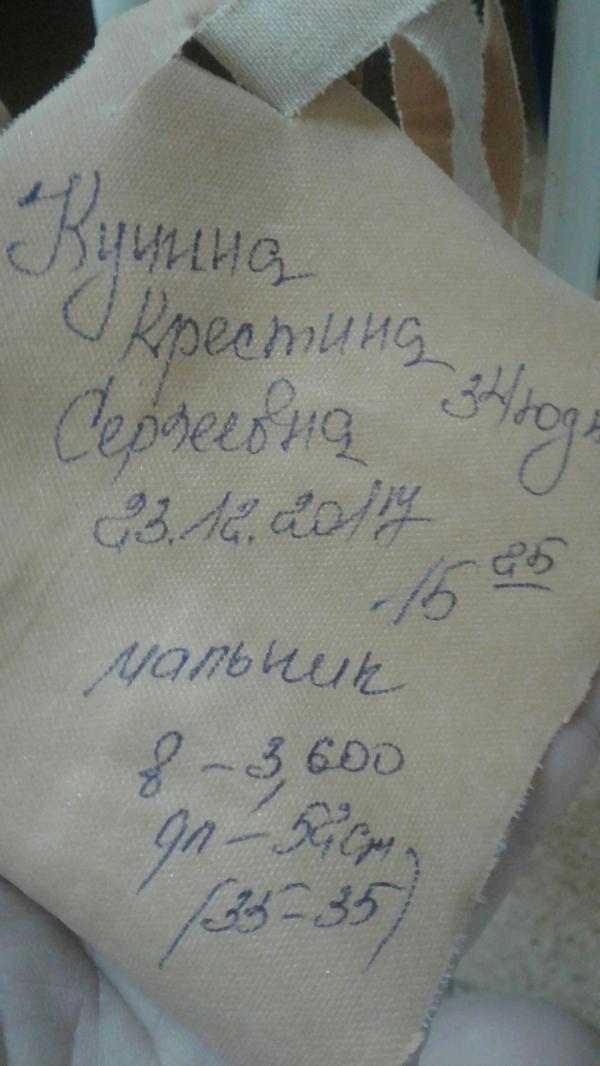 Кучина
Крестина
Сергеевна
34 года
23.12.20
15 25
мальчик
в - 3,600
дл - 52 см
(35-35)